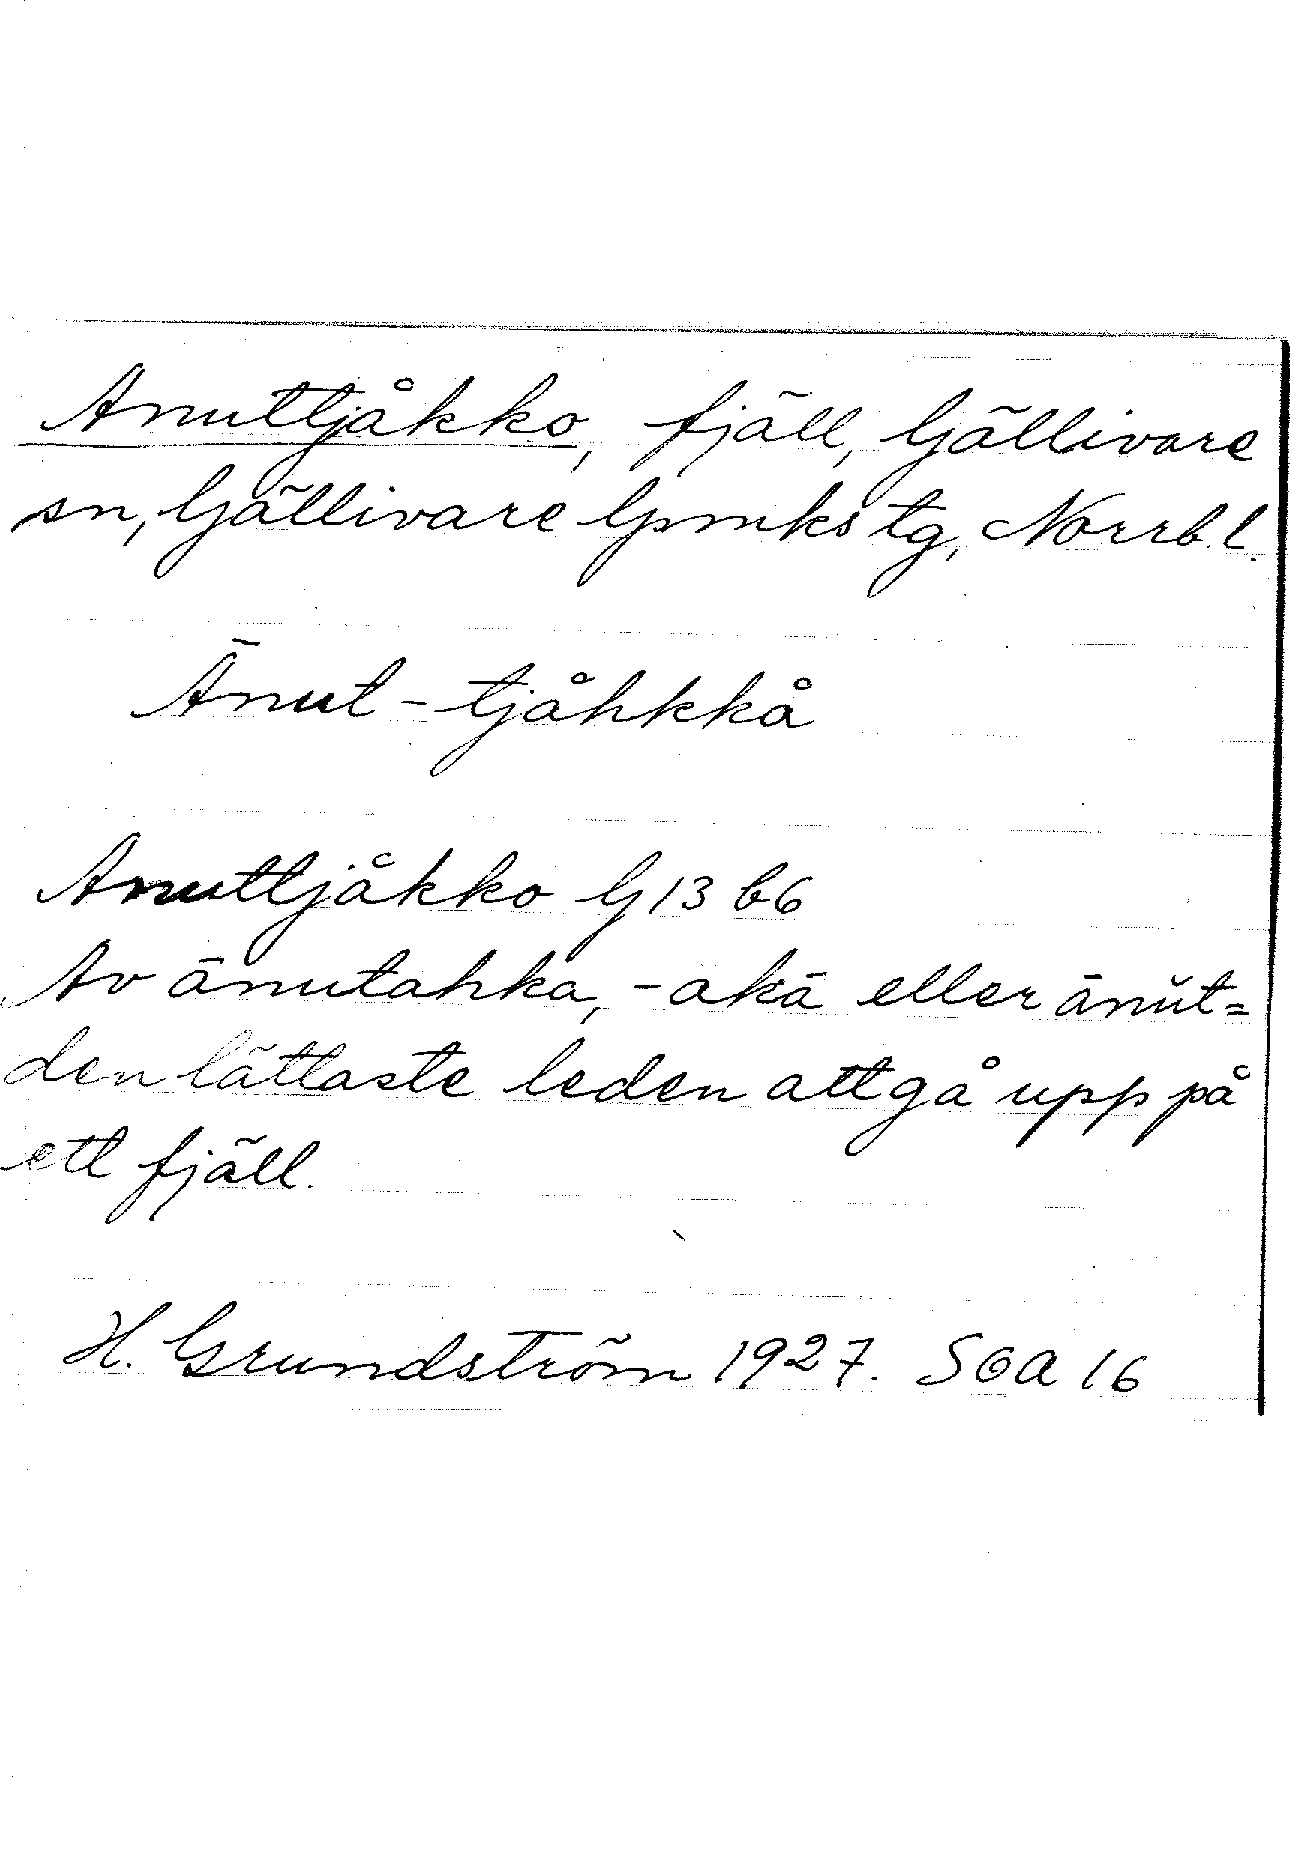 Anuttjåkko, fjäll, Gällivare
sn, Gällivare lpmks tg, Norrb. l.
Ānut - tjåhkkå
Anuttjåkko G 13 b6
Av ānutahka, -akā eller ānut=
den lättaste leden att gå upp på
ett fjäll.
H. Grundström 1927. SOA 16